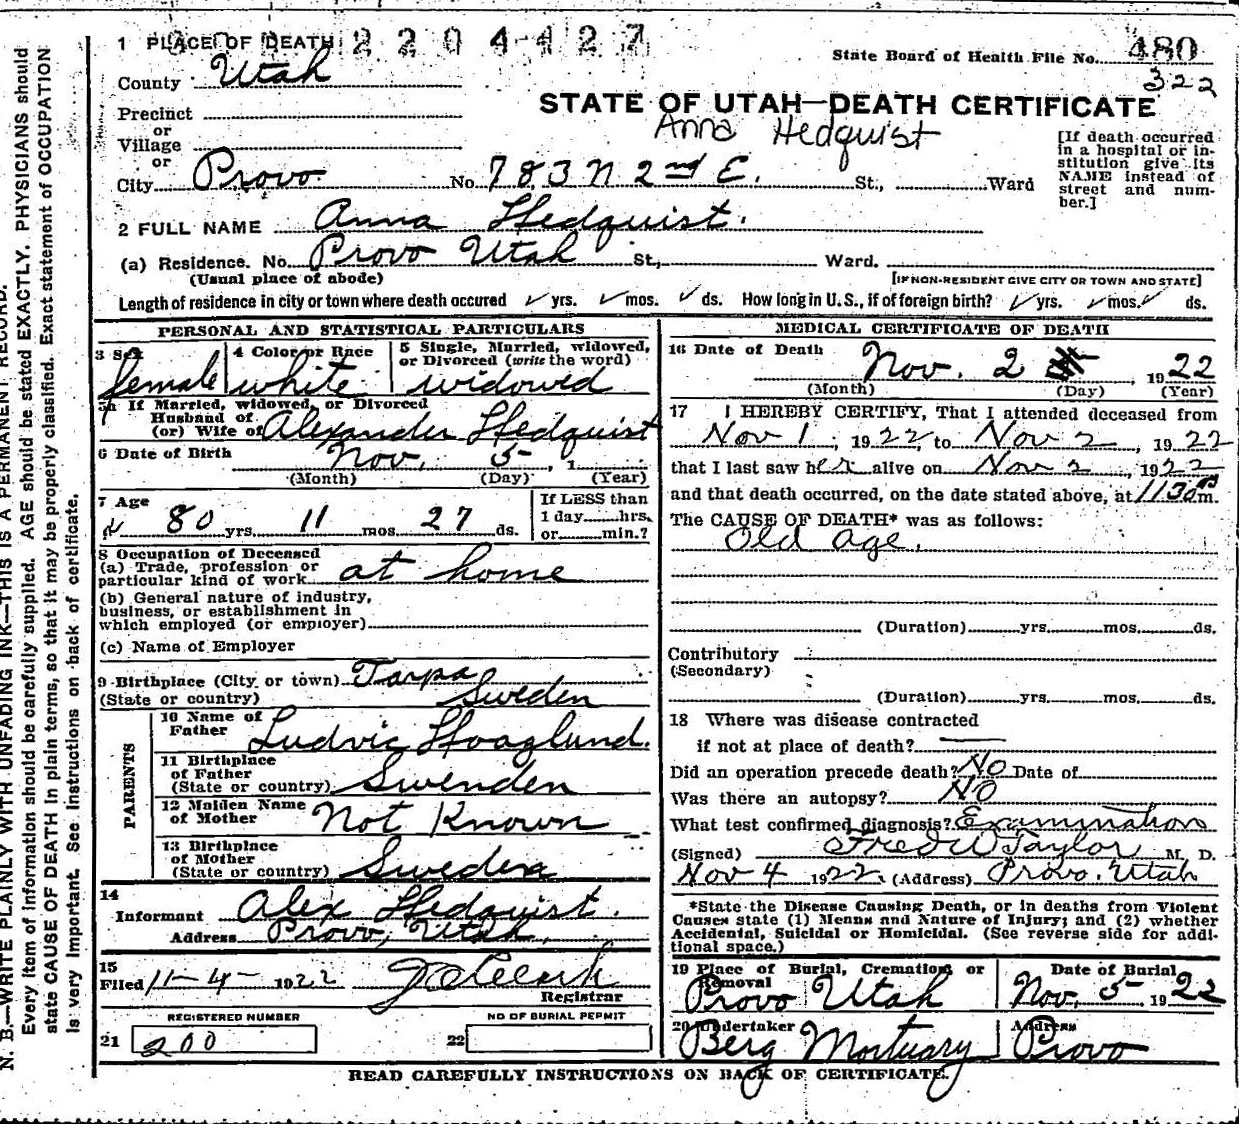 N. B.—WRITE PLAINLY WITH UNFADING INK—THIS IS A PERMANENT RECORD.
Every item of information should be carefully supplied. AGE should be stated EXACTLY. PHYSICIANS should
state CAUSE OF DEATH in plain terms, so that it may be properly classified. Exact statement of OCCUPATION
is very important. See instructions on back of certificate.
1 PLACE OF DEATH 2204427
State Board of Health File No. 480
322
County Utah
STATE OF UTAH—DEATH CERTIFICATE
Anna Hedquist
Precinct
or
Village
or
City Provo No. 783 N 2nd E. St., Ward
[If death occurred
in a hospital or in-
stitution give its
NAME instead of
street and num-
ber.]
2 FULL NAME Anna Hedquist.
(a) Residence. No. Provo Utah St., Ward.
(Usual place of abode) [IF NON-RESIDENT GIVE CITY OR TOWN AND STATE]
Length of residence in city or town where death occured ✓ yrs. ✓ mos. ✓ ds. How long in U. S., if of foreign birth? ✓ yrs. ✓ mos. ✓ ds.
PERSONAL AND STATISTICAL PARTICULARS
3 Sex 4 Color or Race 5 Single, Married, widowed,
or Divorced (write the word)
female white widowed
5a If Married, widowed, or Divorced
Husband of
(or) Wife of Alexander Hedquist
6 Date of Birth Nov. 5, 1
(Month) (Day) (Year)
7 Age If LESS than
1 day hrs.
80 yrs. 11 mos. 27 ds. or min.?
8 Occupation of Deceased
(a) Trade, profession or
particular kind of work at home
(b) General nature of industry,
business, or establishment in
which employed (or employer)
(c) Name of Employer
9 Birthplace (City or town) Tarpa
(State or country) Sweden
PARENTS
10 Name of
Father Ludvic Hoaglund.
11 Birthplace
of Father
(State or country) Swenden
12 Maiden Name
of Mother Not Known
13 Birthplace
of Mother
(State or country) Sweden
14
Informant Alex Hedquist.
Address Provo, Utah.
15
Filed 11-4- 1922
Registrar
REGISTERED NUMBER NO OF BURIAL PERMIT
21 200 22
MEDICAL CERTIFICATE OF DEATH
16 Date of Death Nov. 2, 1922
(Month) (Day) (Year)
17 I HEREBY CERTIFY, That I attended deceased from
Nov 1, 1922, to Nov 2, 1922
that I last saw her alive on Nov 2, 1922
and that death occurred, on the date stated above, at 1130 m.
The CAUSE OF DEATH* was as follows:
Old age.
(Duration) yrs. mos. ds.
Contributory
(Secondary)
(Duration) yrs. mos. ds.
18 Where was disease contracted
if not at place of death?
Did an operation precede death? No Date of
Was there an autopsy? No
What test confirmed diagnosis? Examination
(Signed) Fred W Taylor M. D.
Nov 4 1922 (Address) Provo. Utah
*State the Disease Causing Death, or in deaths from Violent
Causes state (1) Means and Nature of Injury; and (2) whether
Accidental, Suicidal or Homicidal. (See reverse side for addi-
tional space.)
19 Place of Burial, Cremation or
Removal Date of Burial
Provo Utah Nov. 5- 1922
20 Undertaker Address
Berg Mortuary Provo
READ CAREFULLY INSTRUCTIONS ON BACK OF CERTIFICATE.